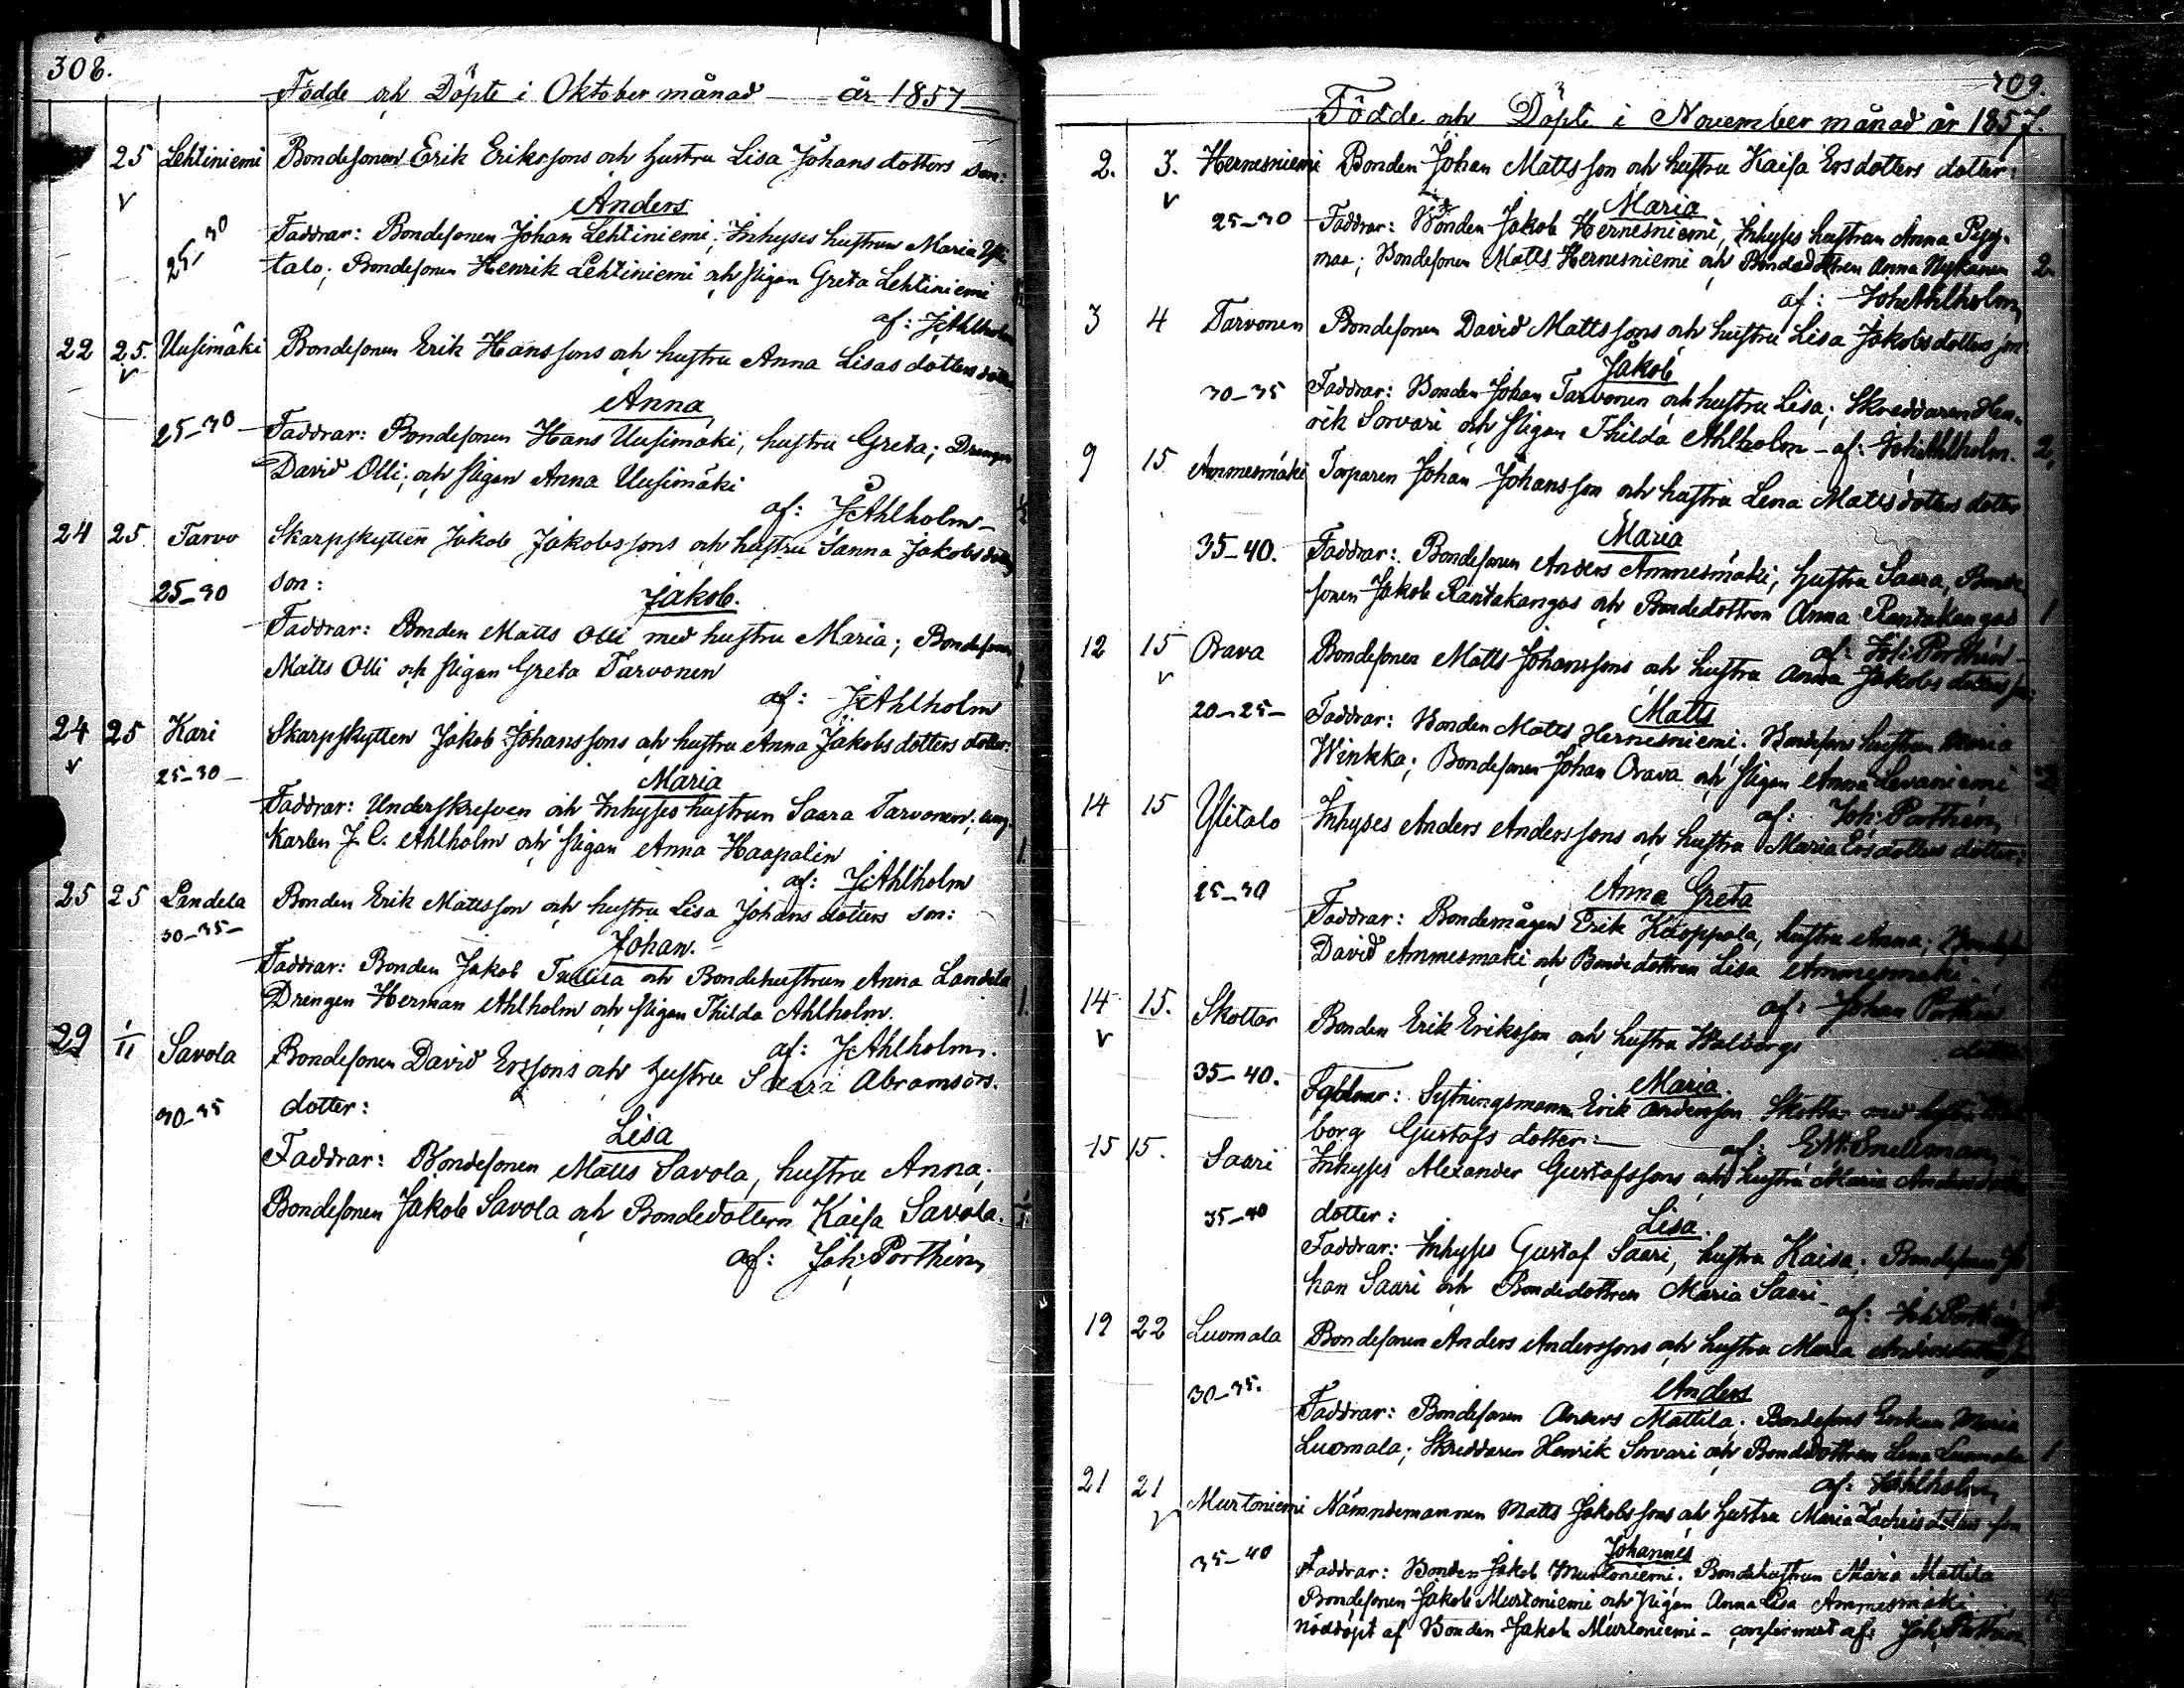 308.
Födde och Döpte i Oktober månad — år 1857
25 Lehtiniemi Bondesonen Erik Erikssons och hustru Lisa Johans dotters son:
Anders
25-30 Faddrar: Bondesonen Johan Lehtiniemi; Inhyses hustrun Maria Yli-
talo; Bondesonen Henrik Lehtiniemi och pigan Greta Lehtiniemi
af: JAhlholm
22 25. Uusimäki Bondesonen Erik Hanssons och hustru Anna Lisas dotters dotter
Anna
25-30 Faddrar: Bondesonen Hans Uusimäki, hustru Greta; Drengen
David Olli; och pigan Anna Uusimäki
af: JAhlholm
24 25 Tarvo Skarpskytten Jakob Jakobssons och hustru Sanna Jakobsdotters
25-30 son:
Jakob.
Faddrar: Bonden Matts Olli med hustru Maria; Bondesonen
Matts Olli och pigan Greta Tarvonen
af: JAhlholm
24 25 Kari Skarpskytten Jakob Johanssons och hustru Anna Jakobs dotters dotter:
25-30 Maria
Faddrar: Underskrefven och Inhyses hustrun Saara Tarvonen; ung-
karlen J. C. Ahlholm och pigan Anna Haapalin
af: JAhlholm
25 25 Landela Bonden Erik Mattsson och hustru Lisa Johans dotters son:
30-35 Johan.
Faddrar: Bonden Jakob Tullila och Bondehustrun Anna Landela
Drengen Herman Ahlholm och pigan Thilda Ahlholm.
af: JAhlholm.
29 1/11 Savola Bondesonen David Erssons och hustru Saara Abramsdrs.
30-35 dotter:
Lisa
Faddrar: Bondesonen Matts Savola, hustru Anna;
Bondesonen Jakob Savola och Bondedottern Kaisa Savola.
af: Joh: Porthén
309.
Födde och Döpte i November månad år 1857.
2. 3. Hernesniemi Bonden Johan Mattsson och hustru Kaisa Ersdotters dotter:
Maria
25-30 Faddrar: Bonden Jakob Hernesniemi, Inhyses hustrun Anna
maa; Bondesonen Matts Hernesniemi och Bondedottren Anna Nykänen 2.
af: Joh:Ahlholm
3 4 Tarvonen Bondesonen David Mattssons och hustru Lisa Jakobs dotters son
Jakob
30-35 Faddrar: Bonden Johan Tarvonen och hustru Lisa; Skreddaren Hen-
rik Sorvari och pigan Thilda Ahlholm - af: Joh:Ahlholm. 2.
9 15 Ammesmäki Torparen Johan Johansson och hustru Lena Matts dotters dotter
Maria
35-40. Faddrar: Bondesonen Anders Ammesmäki, hustru Saara, Bonde
sonen Jakob Rantakangas och Bondedottren Anna Rantakangas 1
af: Joh: Porthén
12 15 Orava Bondesonen Matts Johanssons och hustru Anna Jakobs dotters son:
Matts
20-25- Faddrar: Bonden Matts Hernesniemi; Bondesons hustrun Maria
Winkka; Bondesonen Johan Orava och pigan Anna Levaniemi
af: Joh: Porthén
14 15 Ylitalo Inhyses Anders Anderssons och hustru Maria Ersdotters dotter:
Anna Greta
25-30 Faddrar: Bondemågen Erik Kauppala, hustru Anna;
David Ammesmäki och Bondedottren Lisa Ammesmäki.
af: Johan Porthén
14 15. Skottar Bonden Erik Eriksson och hustru Walborgs dotter
Maria
35-40. Faddrar: Sytningsmannen Erik Andersson Skottar med hustru
borg Gustafs dotter: af: EWSnellman
15 15. Saari Inhyses Alexander Gustafssons och hustru Maria
35-40 dotter:
Lisa
Faddrar: Inhyses Gustaf Saari, hustru Kaisa; Bondesonen Jo
han Saari och Bondedottren Maria Saari
af: Joh:Porthén
19 22 Luomala Bondesonen Anders Anderssons och hustru Maria
Anders
30-35. Faddrar: Bondesonen Anders Mattila; Bondesons Enkan Maria
Luomala; Skreddaren Henrik Sorvari och Bondedottren Lena Luomala 1
af: JAhlholm
21 21 Murtoniemi Nämndemannen Matts Jakobssons och hustru Maria Zachrisdotters son
Johannes
35-40 Faddrar: Bonden Jakob Murtoniemi; Bondehustrun Maria Mattila
Bondesonen Jakob Murtoniemi och pigan Anna Lisa Ammesmäki
nöddöpt af Bonden Jakob Murtoniemi - confirmert af: Joh:Porthén